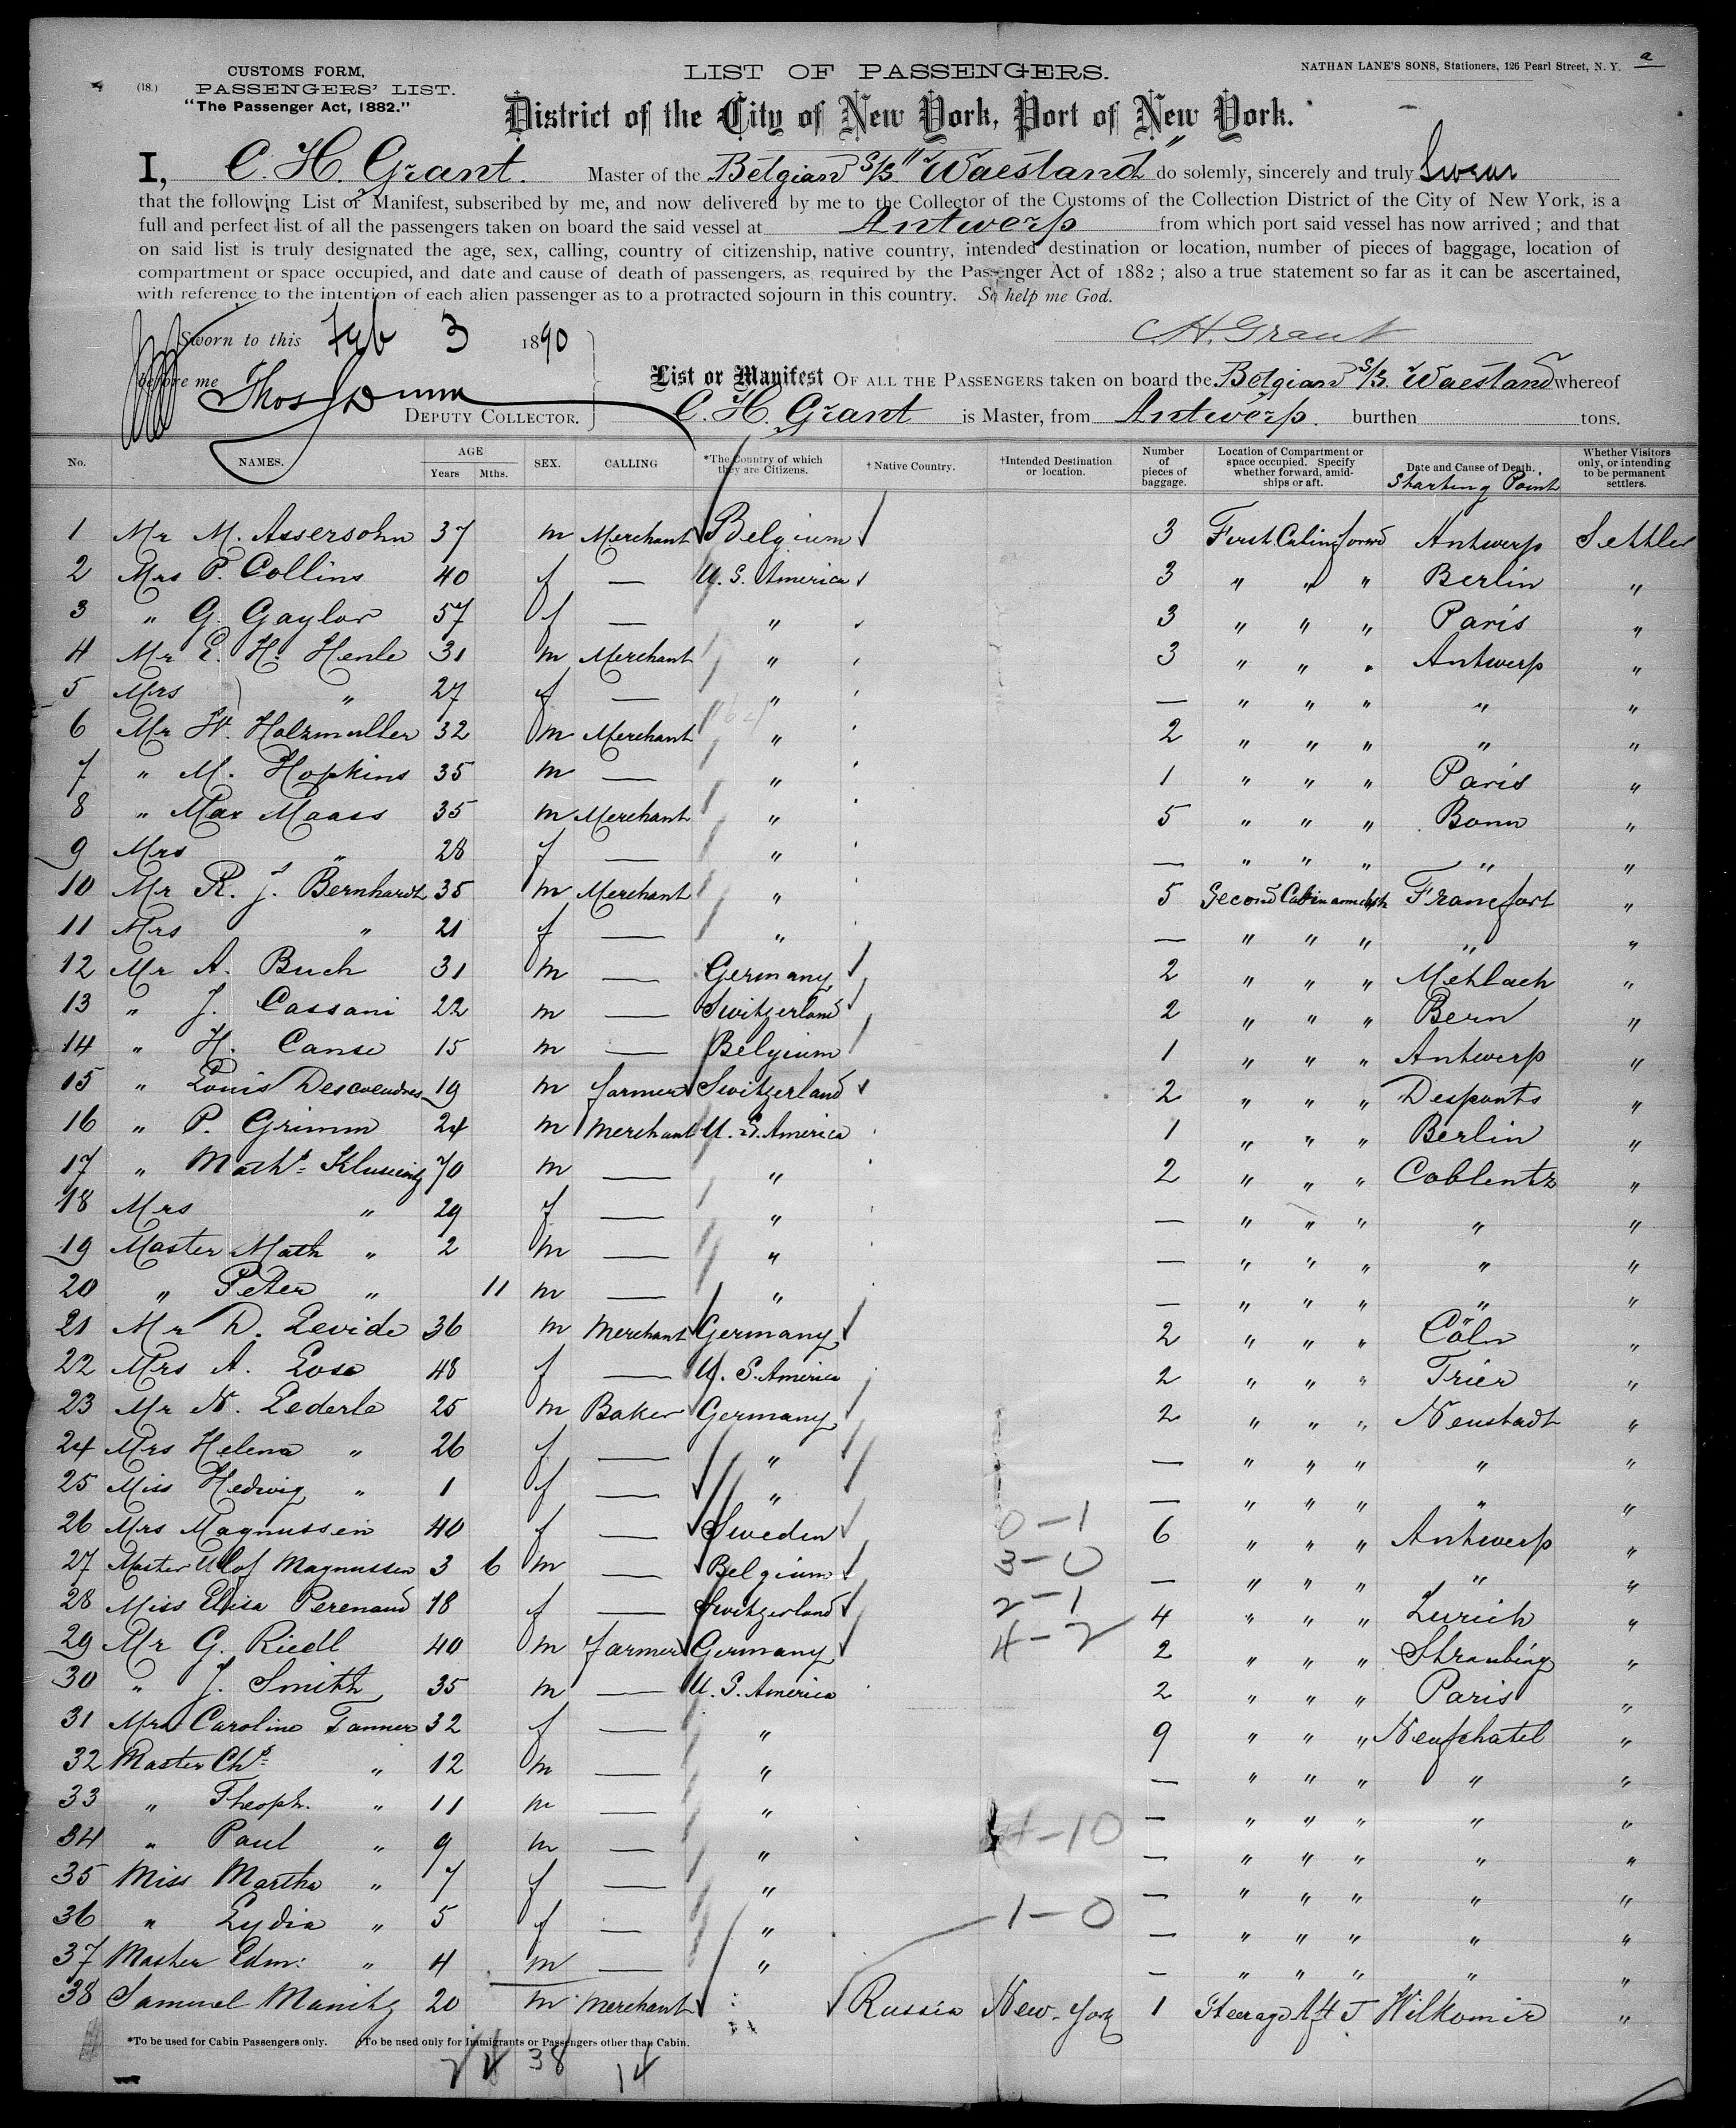 a
CUSTOMS FORM,
(18.) PASSENGERS' LIST.
"The Passenger Act, 1882."
LIST OF PASSENGERS.
NATHAN LANE'S SONS, Stationers, 126 Pearl Street, N. Y.
District of the City of New York, Port of New York.
I, C. H. Grant. Master of the Belgian S/S. "Waesland" do solemnly, sincerely and truly Swear
that the following List or Manifest, subscribed by me, and now delivered by me to the Collector of the Customs of the Collection District of the City of New York, is a
full and perfect list of all the passengers taken on board the said vessel at Antwerp from which port said vessel has now arrived; and that
on said list is truly designated the age, sex, calling, country of citizenship, native country, intended destination or location, number of pieces of baggage, location of
compartment or space occupied, and date and cause of death of passengers, as required by the Passenger Act of 1882; also a true statement so far as it can be ascertained,
with reference to the intention of each alien passenger as to a protracted sojourn in this country. So help me God.
C. H. Grant
Sworn to this Feb 3 1890
before me Thos J Dunn
DEPUTY COLLECTOR.
List or Manifest OF ALL THE PASSENGERS taken on board the Belgian S/S. Waesland whereof
C. H. Grant is Master, from Antwerp. burthen tons.
No. NAMES. AGE Years Mths. SEX. CALLING *The Country of which they are Citizens. † Native Country. †Intended Destination or location. Number of pieces of baggage. Location of Compartment or space occupied. Specify whether forward, amidships or aft. Date and Cause of Death. Starting Point Whether Visitors only, or intending to be permanent settlers.
1 Mr M. Assersohn 37 m Merchant Belgium 3 First Cabin forwd Antwerp Settler
2 Mrs P. Collins 40 f — U. S. America 3 " " " Berlin "
3 " G. Gaylor 57 f — " 3 " " " Paris "
4 Mr E. H. Henle 31 m Merchant " 3 " " " Antwerp "
5 Mrs " 27 f — " — " " " " "
6 Mr W. Holzmuller 32 m Merchant " 2 " " " " "
7 " M. Hopkins 35 m — " 1 " " " Paris "
8 " Max Maass 35 m Merchant " 5 " " " Bonn "
9 Mrs " 28 f — " — " " " " "
10 Mr R. J. Bernhardt 35 m Merchant " 5 Second Cabin amidsh Francfort "
11 Mrs " 21 f — " — " " " " "
12 Mr A. Buch 31 m — Germany 2 " " " Mehlach "
13 " J. Cassani 22 m — Switzerland 2 " " " Bern "
14 " H. Canse 15 m — Belgium 1 " " " Antwerp "
15 " Louis Descoeudres 19 m farmer Switzerland 2 " " " Desponts "
16 " P. Grimm 24 m Merchant U. S. America 1 " " " Berlin "
17 " Maths 70 m — " 2 " " " Coblentz "
18 Mrs " 29 f — " — " " " " "
19 Master Math " 2 m — " — " " " " "
20 " Peter " 11 m — " — " " " " "
21 Mr D. Levide 36 m Merchant Germany 2 " " " Cöln "
22 Mrs A. Losa 48 f — U. S. America 2 " " " Trier "
23 Mr N. Lederle 25 m Baker Germany 2 " " " Neustadt "
24 Mrs Helena " 26 f — " — " " " " "
25 Miss Hedwig " 1 f — " — " " " " "
26 Mrs Magnussen 40 f — Sweden 0-1 6 " " " Antwerp "
27 Master Ulof Magnussen 3 6 m — Belgium 3-0 — " " " " "
28 Miss Elisa Perenaud 18 f — Switzerland 2-1 4 " " " Zurich "
29 Mr G. Riedl 40 m farmer Germany 4-2 2 " " " Straubing "
30 " J. Smith 35 m — U. S. America 2 " " " Paris "
31 Mrs Caroline Tanner 32 f — " 9 " " " Neufchatel "
32 Master Chs " 12 m — " — " " " " "
33 " Theoph. " 11 m — " — " " " " "
34 " Paul " 9 m — " 4-10 — " " " " "
35 Miss Martha " 7 f — " — " " " " "
36 " Lydia " 5 f — " 1-0 — " " " " "
37 Master Edm: " 4 m — " — " " " " "
38 Samuel Manitz 20 m Merchant Russia New-York 1 Steerage Aft J Wilkomir "
*To be used for Cabin Passengers only. †To be used only for Immigrants or Passengers other than Cabin.
24 38 14